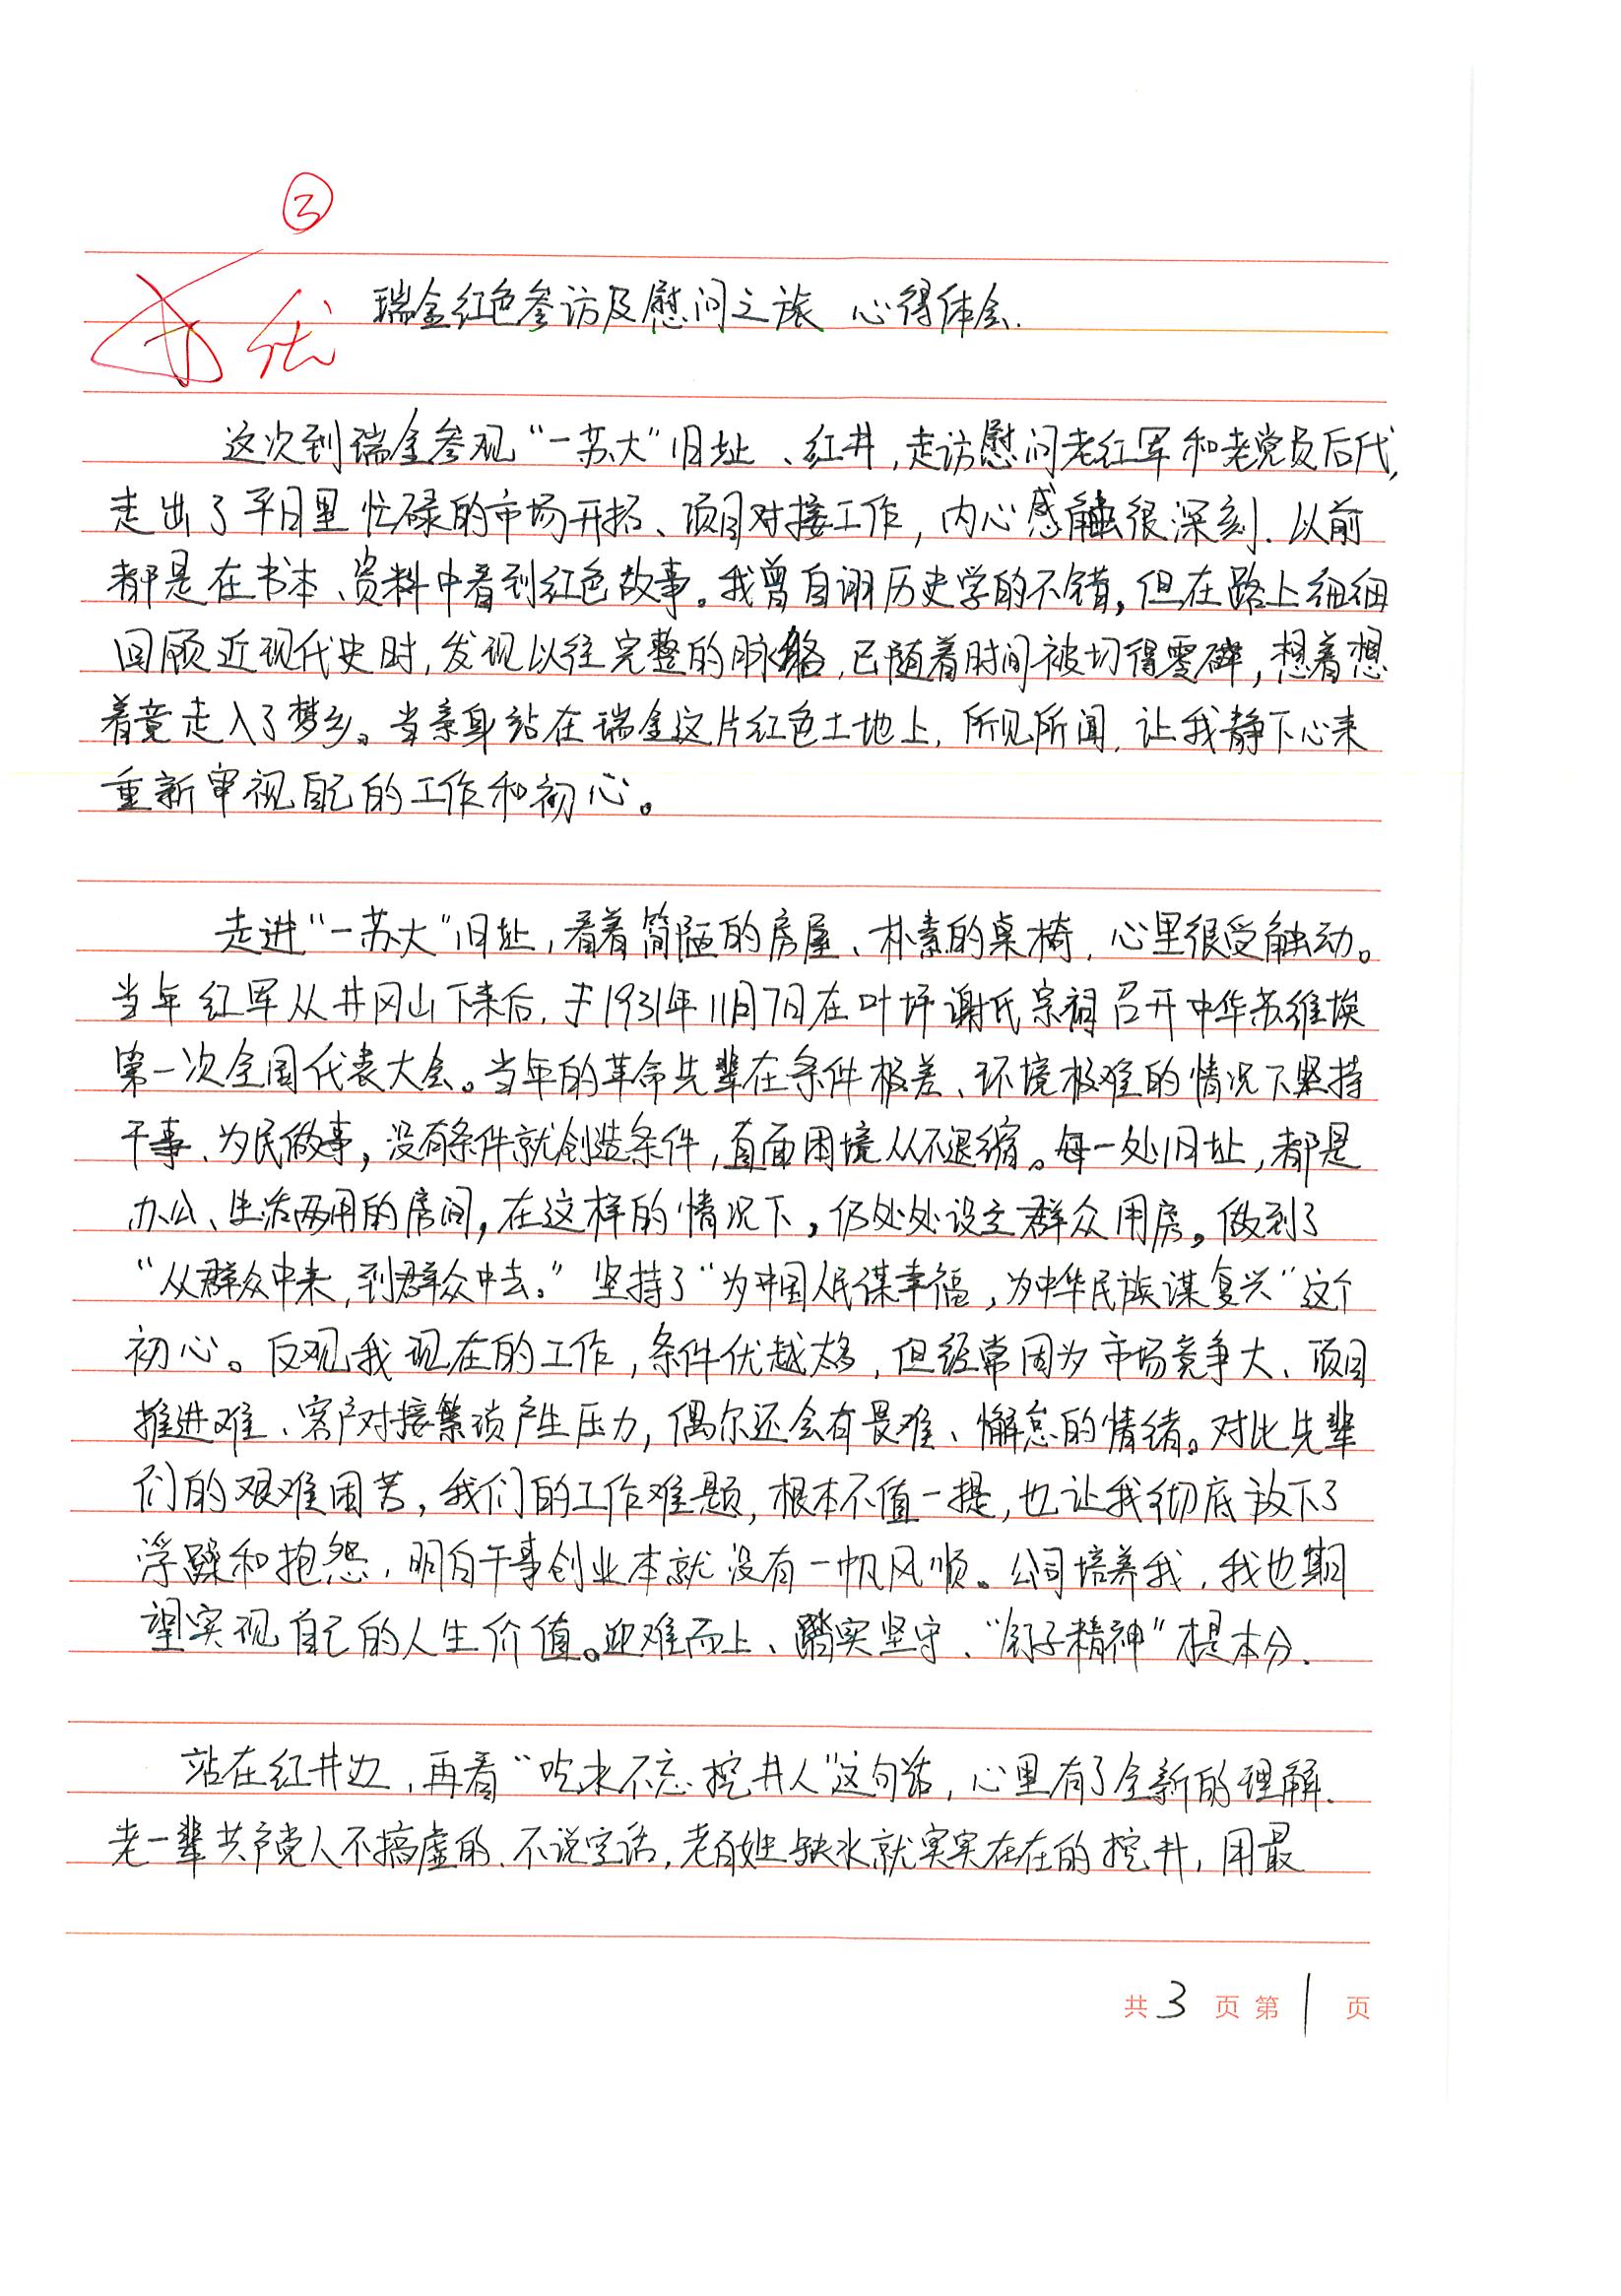 ③
优
瑞金红色参访及慰问之旅 心得体会.
这次到瑞金参观“一苏大”旧址、红井,走访慰问老红军和老党员后代,
走出了平日里忙碌的市场开拓、项目对接工作,内心感触很深刻.以前
都是在书本、资料中看到红色故事。我曾自诩历史学的不错,但在路上细细
回顾近现代史时,发现以往完整的脉络,已随着时间被切得零碎,想着想
着竟走入了梦乡。当亲身站在瑞金这片红色土地上,所见所闻,让我静下心来
重新审视自己的工作和初心。
走进“一苏大”旧址,看着简陋的房屋、朴素的桌椅,心里很受触动。
当年红军从井冈山下来后,于1931年11月7日在叶坪谢氏宗祠召开中华苏维埃
第一次全国代表大会。当年的革命先辈在条件极差、环境极难的情况下坚持
干事、为民做事,没有条件就创造条件,直面困境从不退缩。每一处旧址,都是
办公、生活两用的房间,在这样的情况下,仍处处设立群众用房,做到了
“从群众中来,到群众中去。”坚持了“为中国人民谋幸福,为中华民族谋复兴”这个
初心。反观我现在的工作,条件优越太多,但经常因为市场竞争大、项目
推进难、客户对接繁琐产生压力,偶尔还会有畏难、懈怠的情绪。对比先辈
们的艰难困苦,我们的工作难题,根本不值一提,也让我彻底放下了
浮躁和抱怨,明白干事创业本就没有一帆风顺。公司培养我,我也期
望实现自己的人生价值。迎难而上、踏实坚守、“钉子精神”是本分.
站在红井边,再看“吃水不忘挖井人”这句话,心里有了全新的理解.
老一辈共产党人不搞虚的、不说空话,老百姓缺水就实实在在的挖井,用最
共3页第1页